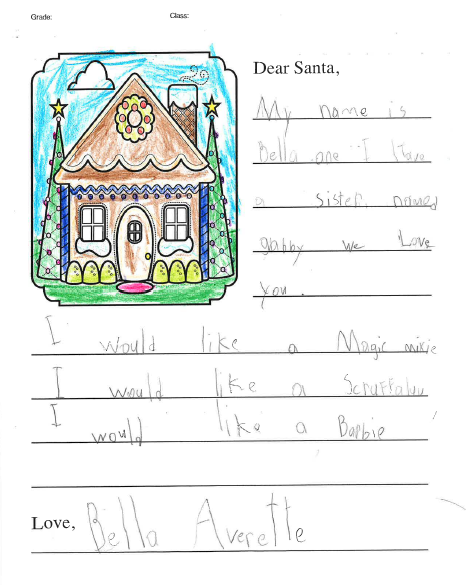 Grade: Class:
Dear Santa,
My name is
Bella ane I Have
a sister named
gabby we Love
you.
I would like a Magic mixie
I would like a Scruffaluv
I would like a Barbie
Love, Bella Averette